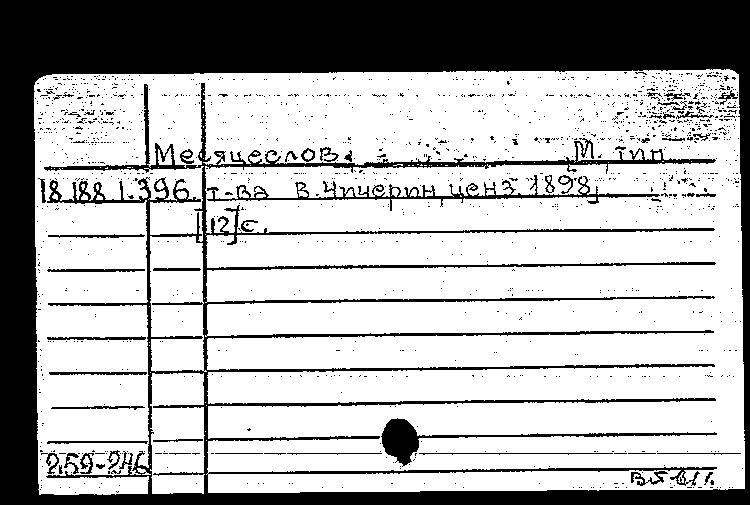 Месяцеслов. [М. тип
18.188.1.396. т-ва В.Чичерин, ценз. 1898]
[12] с.
259-246